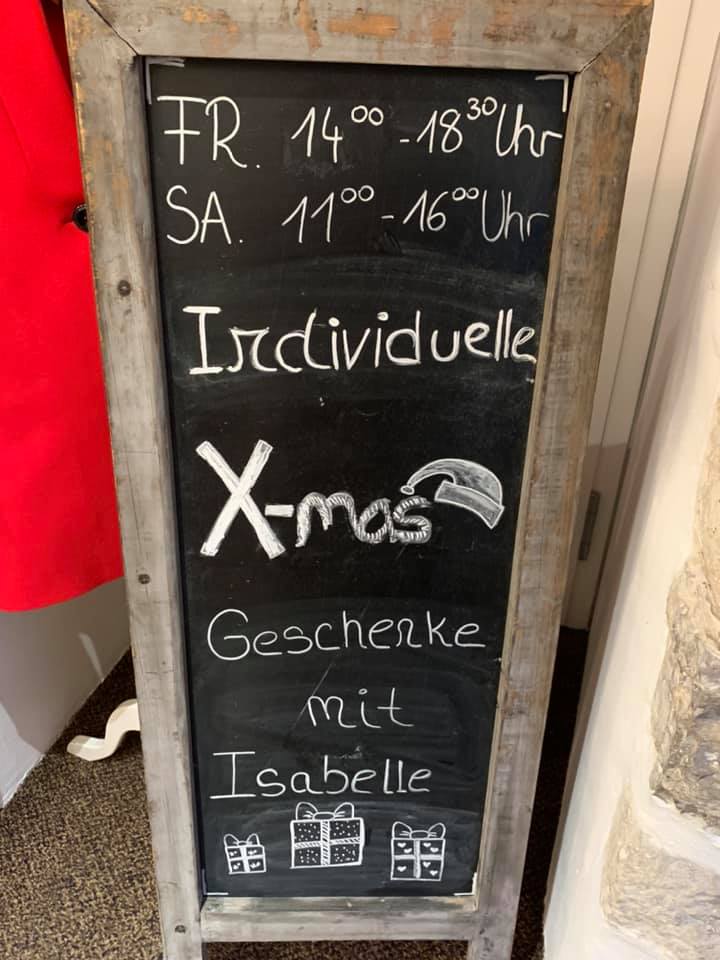 FR. 14⁰⁰ - 18³⁰ Uhr
SA. 11⁰⁰ - 16⁰⁰ Uhr
Individuelle
X-mas
Geschenke
mit
Isabelle